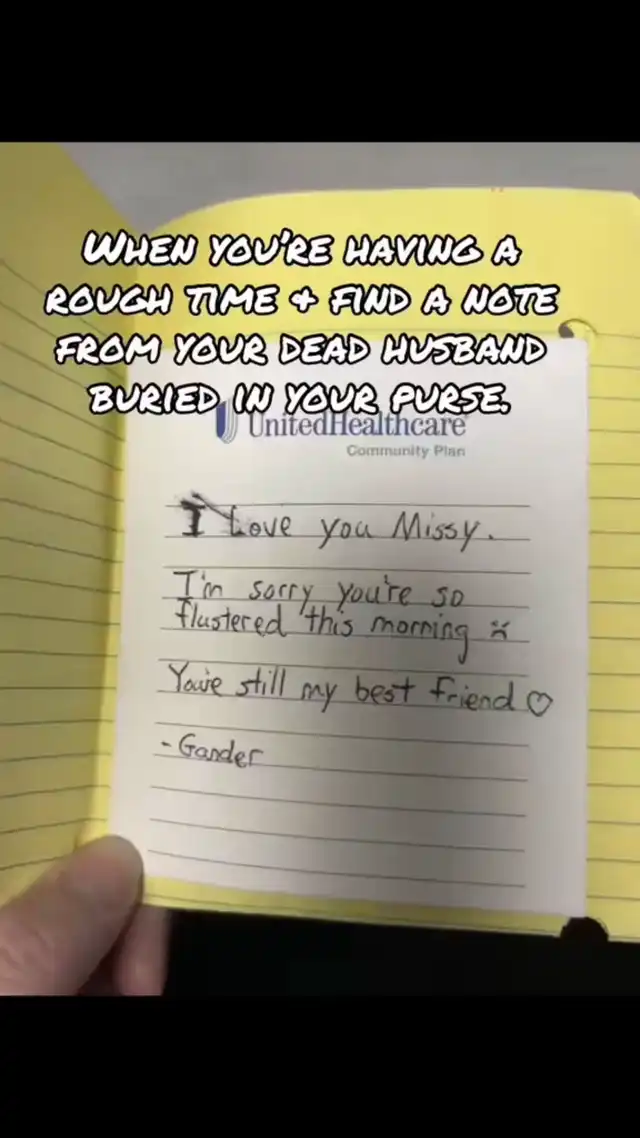 WHEN YOU'RE HAVING A
ROUGH TIME & FIND A NOTE
FROM YOUR DEAD HUSBAND
BURIED IN YOUR PURSE.
UnitedHealthcare
Community Plan
I Love you Missy.
I'm sorry you're so
flustered this morning :(
You're still my best friend ♡
- Gander